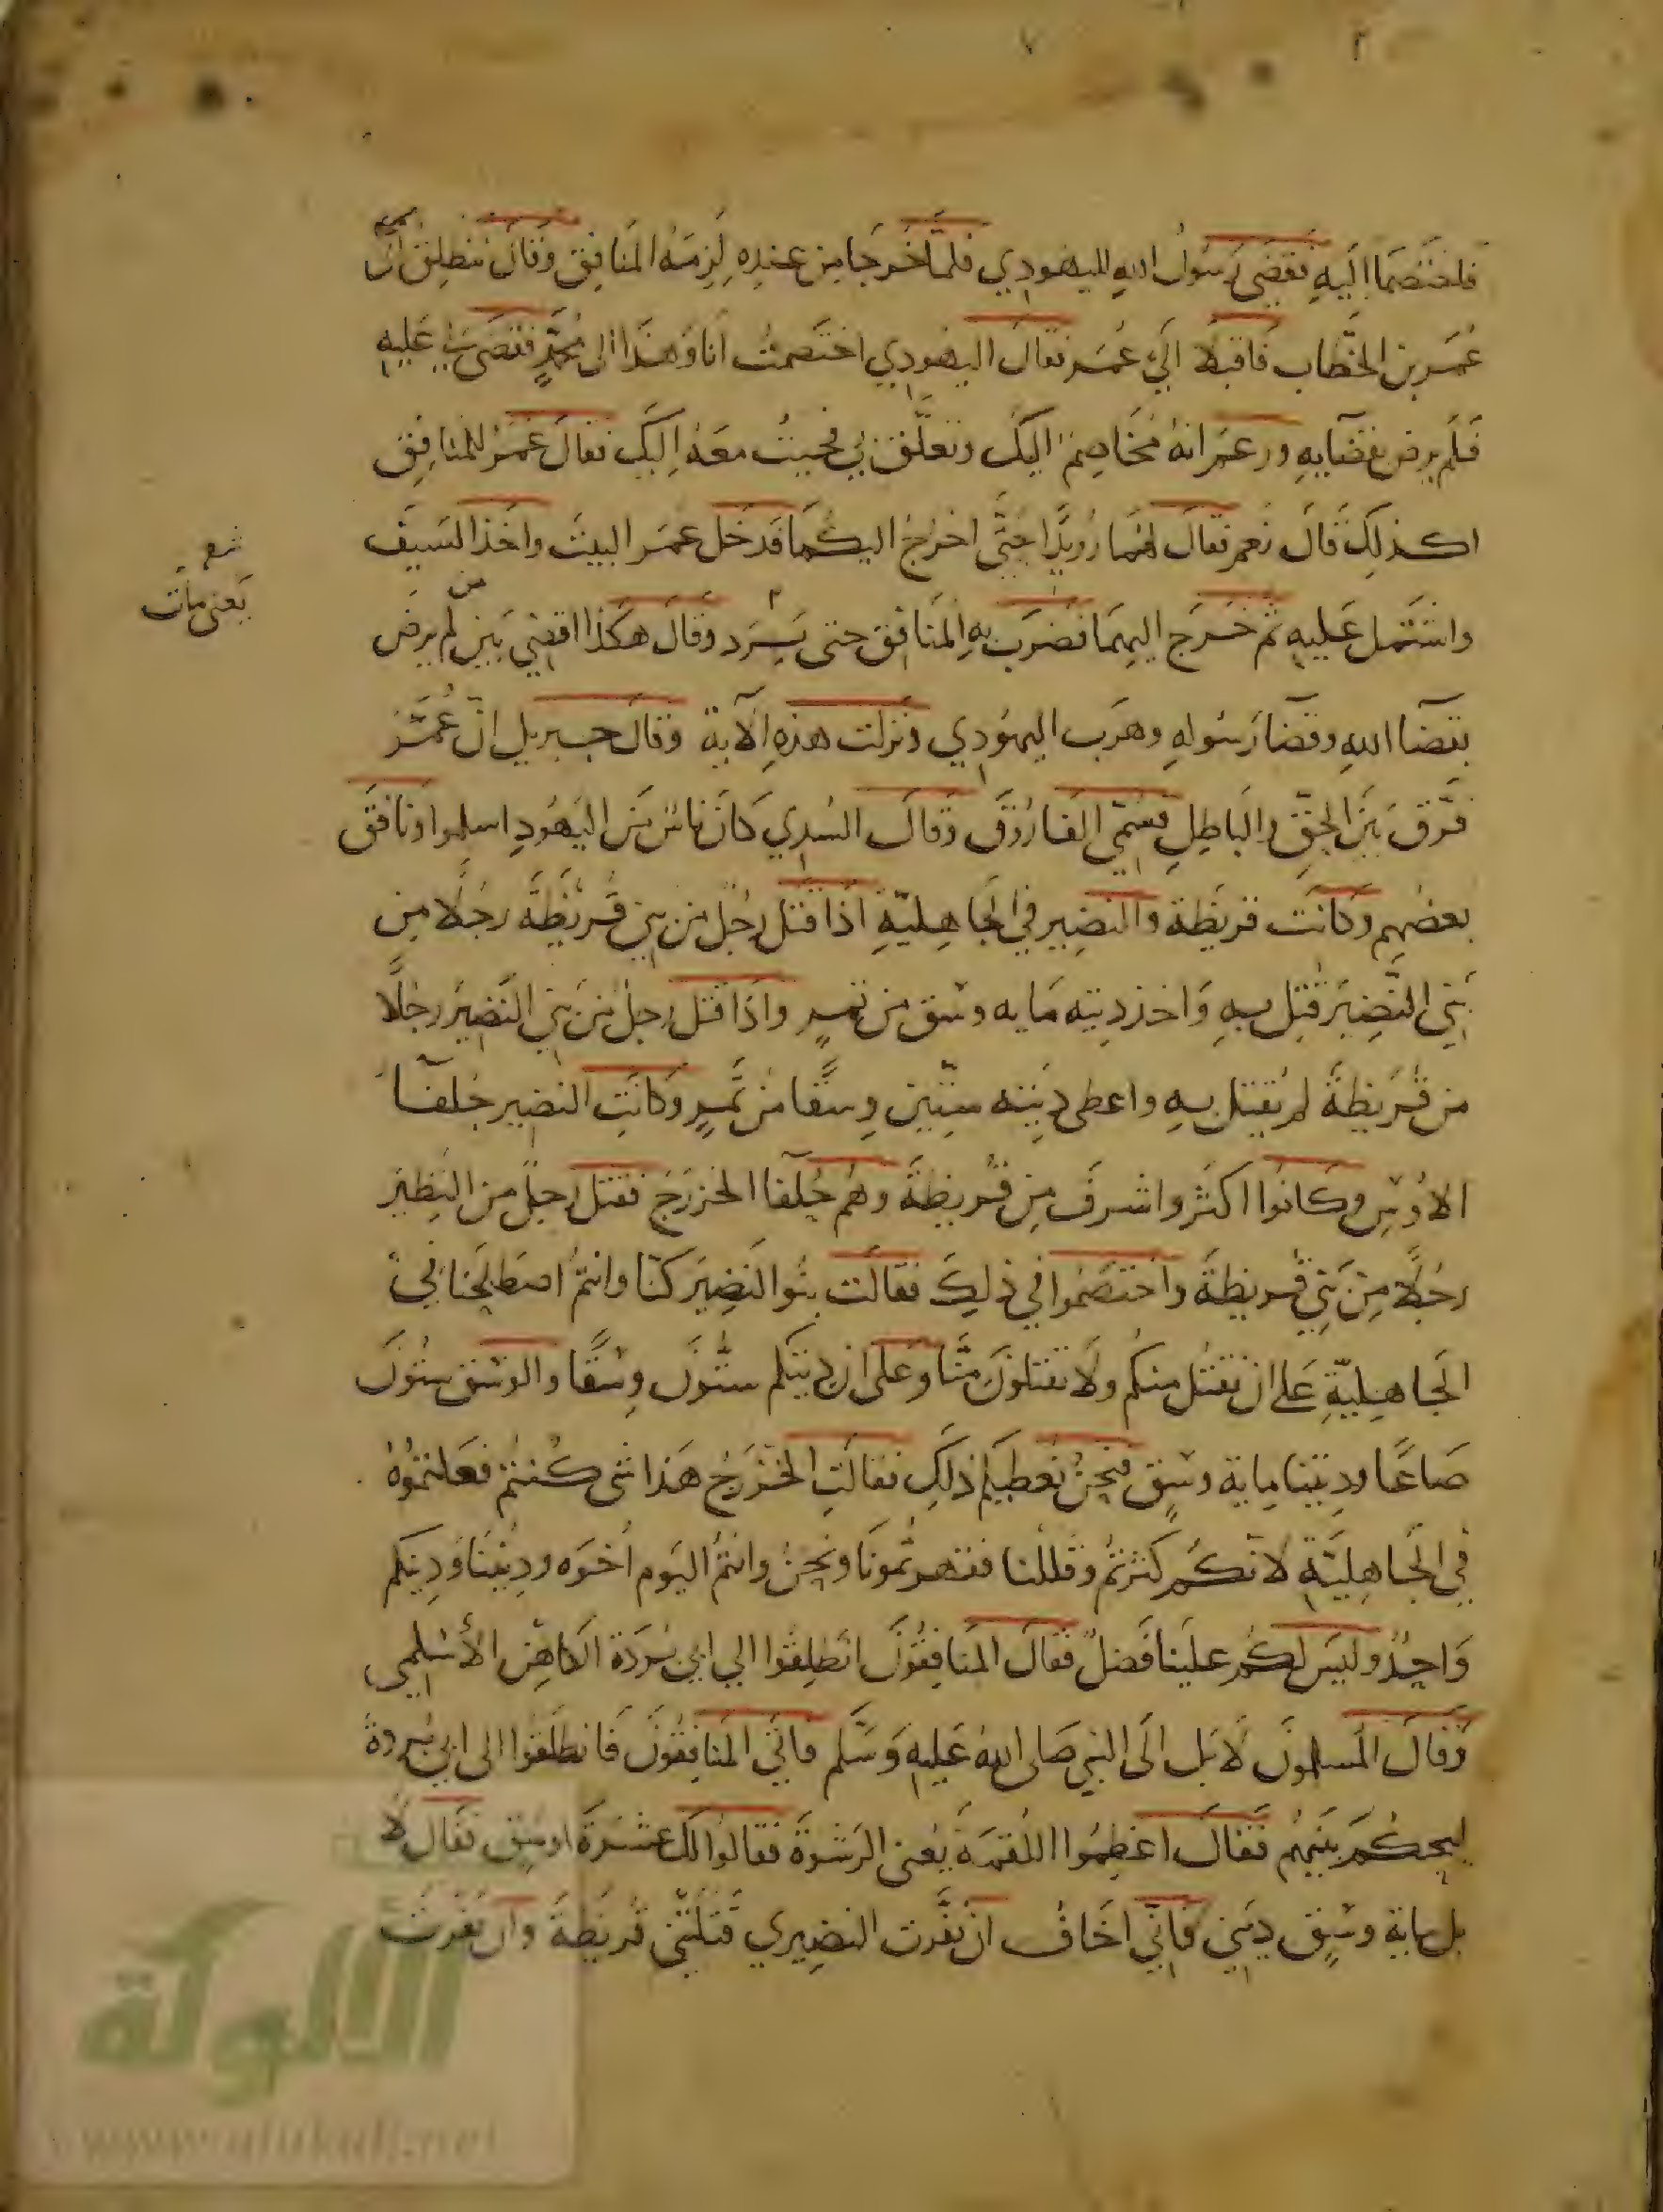 فاختصما اليه فقضى رسول الله لليهودي فلما خرجا من عنده لزمه المنافق وقال ننطلق الى
عمر بن الخطاب فاقبلا الى عمر فقال اليهودي اختصمت انا وهذا الى محمد فقضى لي عليه
فلم يرض بقضايه وزعم انه مخاصم اليك وتعلق بي فجيت معه اليك فقال عمر للمنافق
اكذلك قال نعم فقال لهما رويدا حتى اخرج اليكما فدخل عمر البيت واخذ السيف
واشتمل عليه ثم خرج اليهما فضرب به المنافق حتى برد وقال هكذا اقضي بين من لم يرض
يعنى مات
بقضا الله وقضا رسوله وهرب اليهودي ونزلت هذه الآية وقال جبريل ان عمر
فرق بين الحق والباطل فسمي الفاروق وقال السدي كان ناس من اليهود اسلموا ونافق
بعضهم وكانت قريظة والنضير في الجاهلية اذا قتل رجل من بني قريظة رجلا من
بني النضير قتل به واخذ ديته مايه وسق من تمر واذا قتل رجل من بني النضير رجلا
من قريظة لم يقتل به واعطى ديته ستين وسقا من تمر وكانت النضير حلفآ
الاوس وكانوا اكثر واشرف من قريظة وهم حلفا الخزرج فقتل رجل من النظير
رجلا من بني قريظة واختصموا في ذلك فقالت بنوا النضير كنا وانتم اصطلحنا في
الجاهلية على ان نقتل منكم ولا تقتلون منا وعلى ان ديتكم ستون وسقا والوسق ستون
صاعا وديتنا ماية وسق فنحن نعطيكم ذلك فقالت الخزرج هذا شى كنتم فعلتموه
في الجاهلية لانكم كثرتم وقللنا فقهرتمونا ونحن وانتم اليوم اخوه وديننا ودينكم
واحد وليس لكم علينا فضل فقال المنافقون انطلقوا الى ابي بردة الكاهن الأسلمي
وقال المسلمون لا بل الى النبي صلى الله عليه وسلم فابى المنافقون فانطلقوا الى ابي بردة
ليحكم بينهم فقال اعظموا اللقمة يعنى الرشوة فقالوا لك عشرة اوسق فقال لا
بل ماية وسق ديتي فاني اخاف ان نفرت النضيري قتلتني قريظة وان نفرت
الألوكة
www.alukah.net